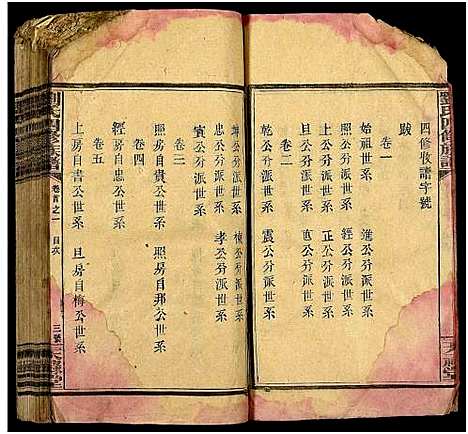 劉氏四修族譜
四修收譜字號
跋
卷一
始祖世系　進公分派世系
照公分派世系　經公分派世系
上公分派世系　正公分派世系
旦公分派世系
卷二
乾公分派世系　震公分派世系
坤公分派世系　棟公分派世系
忠公分派世系　孝公分派世系
賓公分派世系
卷三
照房自貴公世系　照房自邦公世系
卷四
經房自忠公世系
卷五
上房自書公世系　旦房自梅公世系
劉氏四修族譜
卷首之一　目次